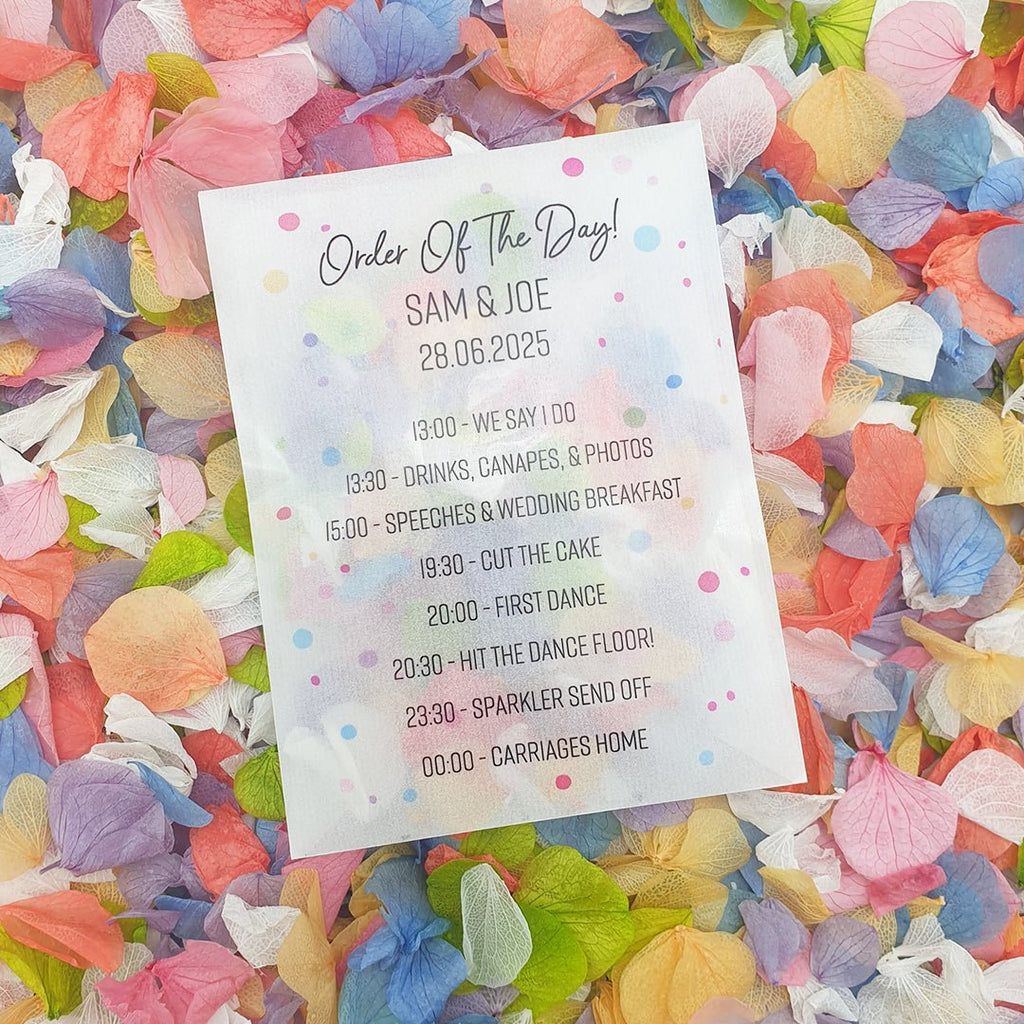 Order Of The Day!
SAM & JOE
28.06.2025
13:00 - WE SAY I DO
13:30 - DRINKS, CANAPES, & PHOTOS
15:00 - SPEECHES & WEDDING BREAKFAST
19:30 - CUT THE CAKE
20:00 - FIRST DANCE
20:30 - HIT THE DANCE FLOOR!
23:30 - SPARKLER SEND OFF
00:00 - CARRIAGES HOME